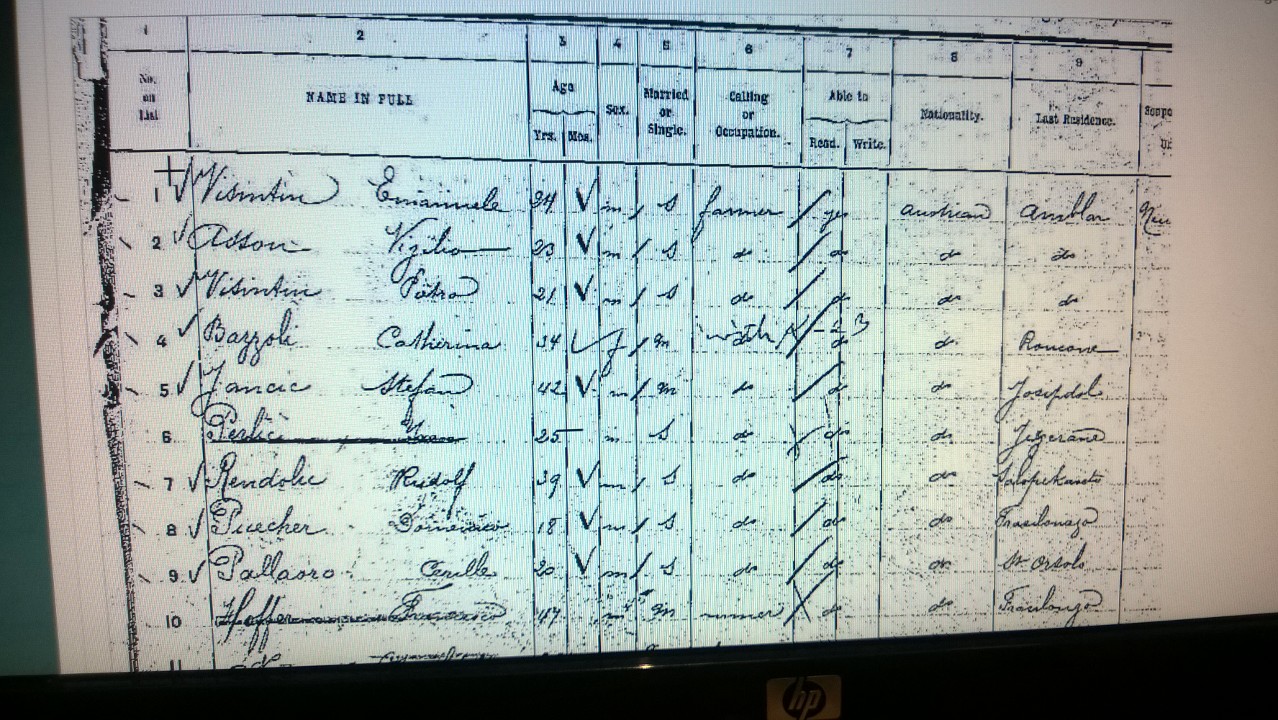 1 2 3 4 5 6 7 8 9
No. on List NAME IN FULL Age Yrs. Mos. Sex. Married or Single. Calling or Occupation. Able to Read. Write. Nationality. Last Residence.
1 Visintin Emanuele 24 m s farmer yes austrian Amblar
2 Asson Vizilio 23 m s do do do do
3 Visintin Pietro 21 m s do do do do
4 Bazzoli Catherina 34 f m do do Roncone
5 Jancic Stefan 42 m m do do do Josipdol
6 Perlic 25 m s do do do Jezerane
7 Rendolic Rudolf 39 m s do do do
8 Puecher Domenico 18 m s do do do Frasilongo
9 Pallaoro Cirillo 20 m s do do do St Orsola
10 Hoffer Francesco 47 m m miner do do Frasilongo
11
hp